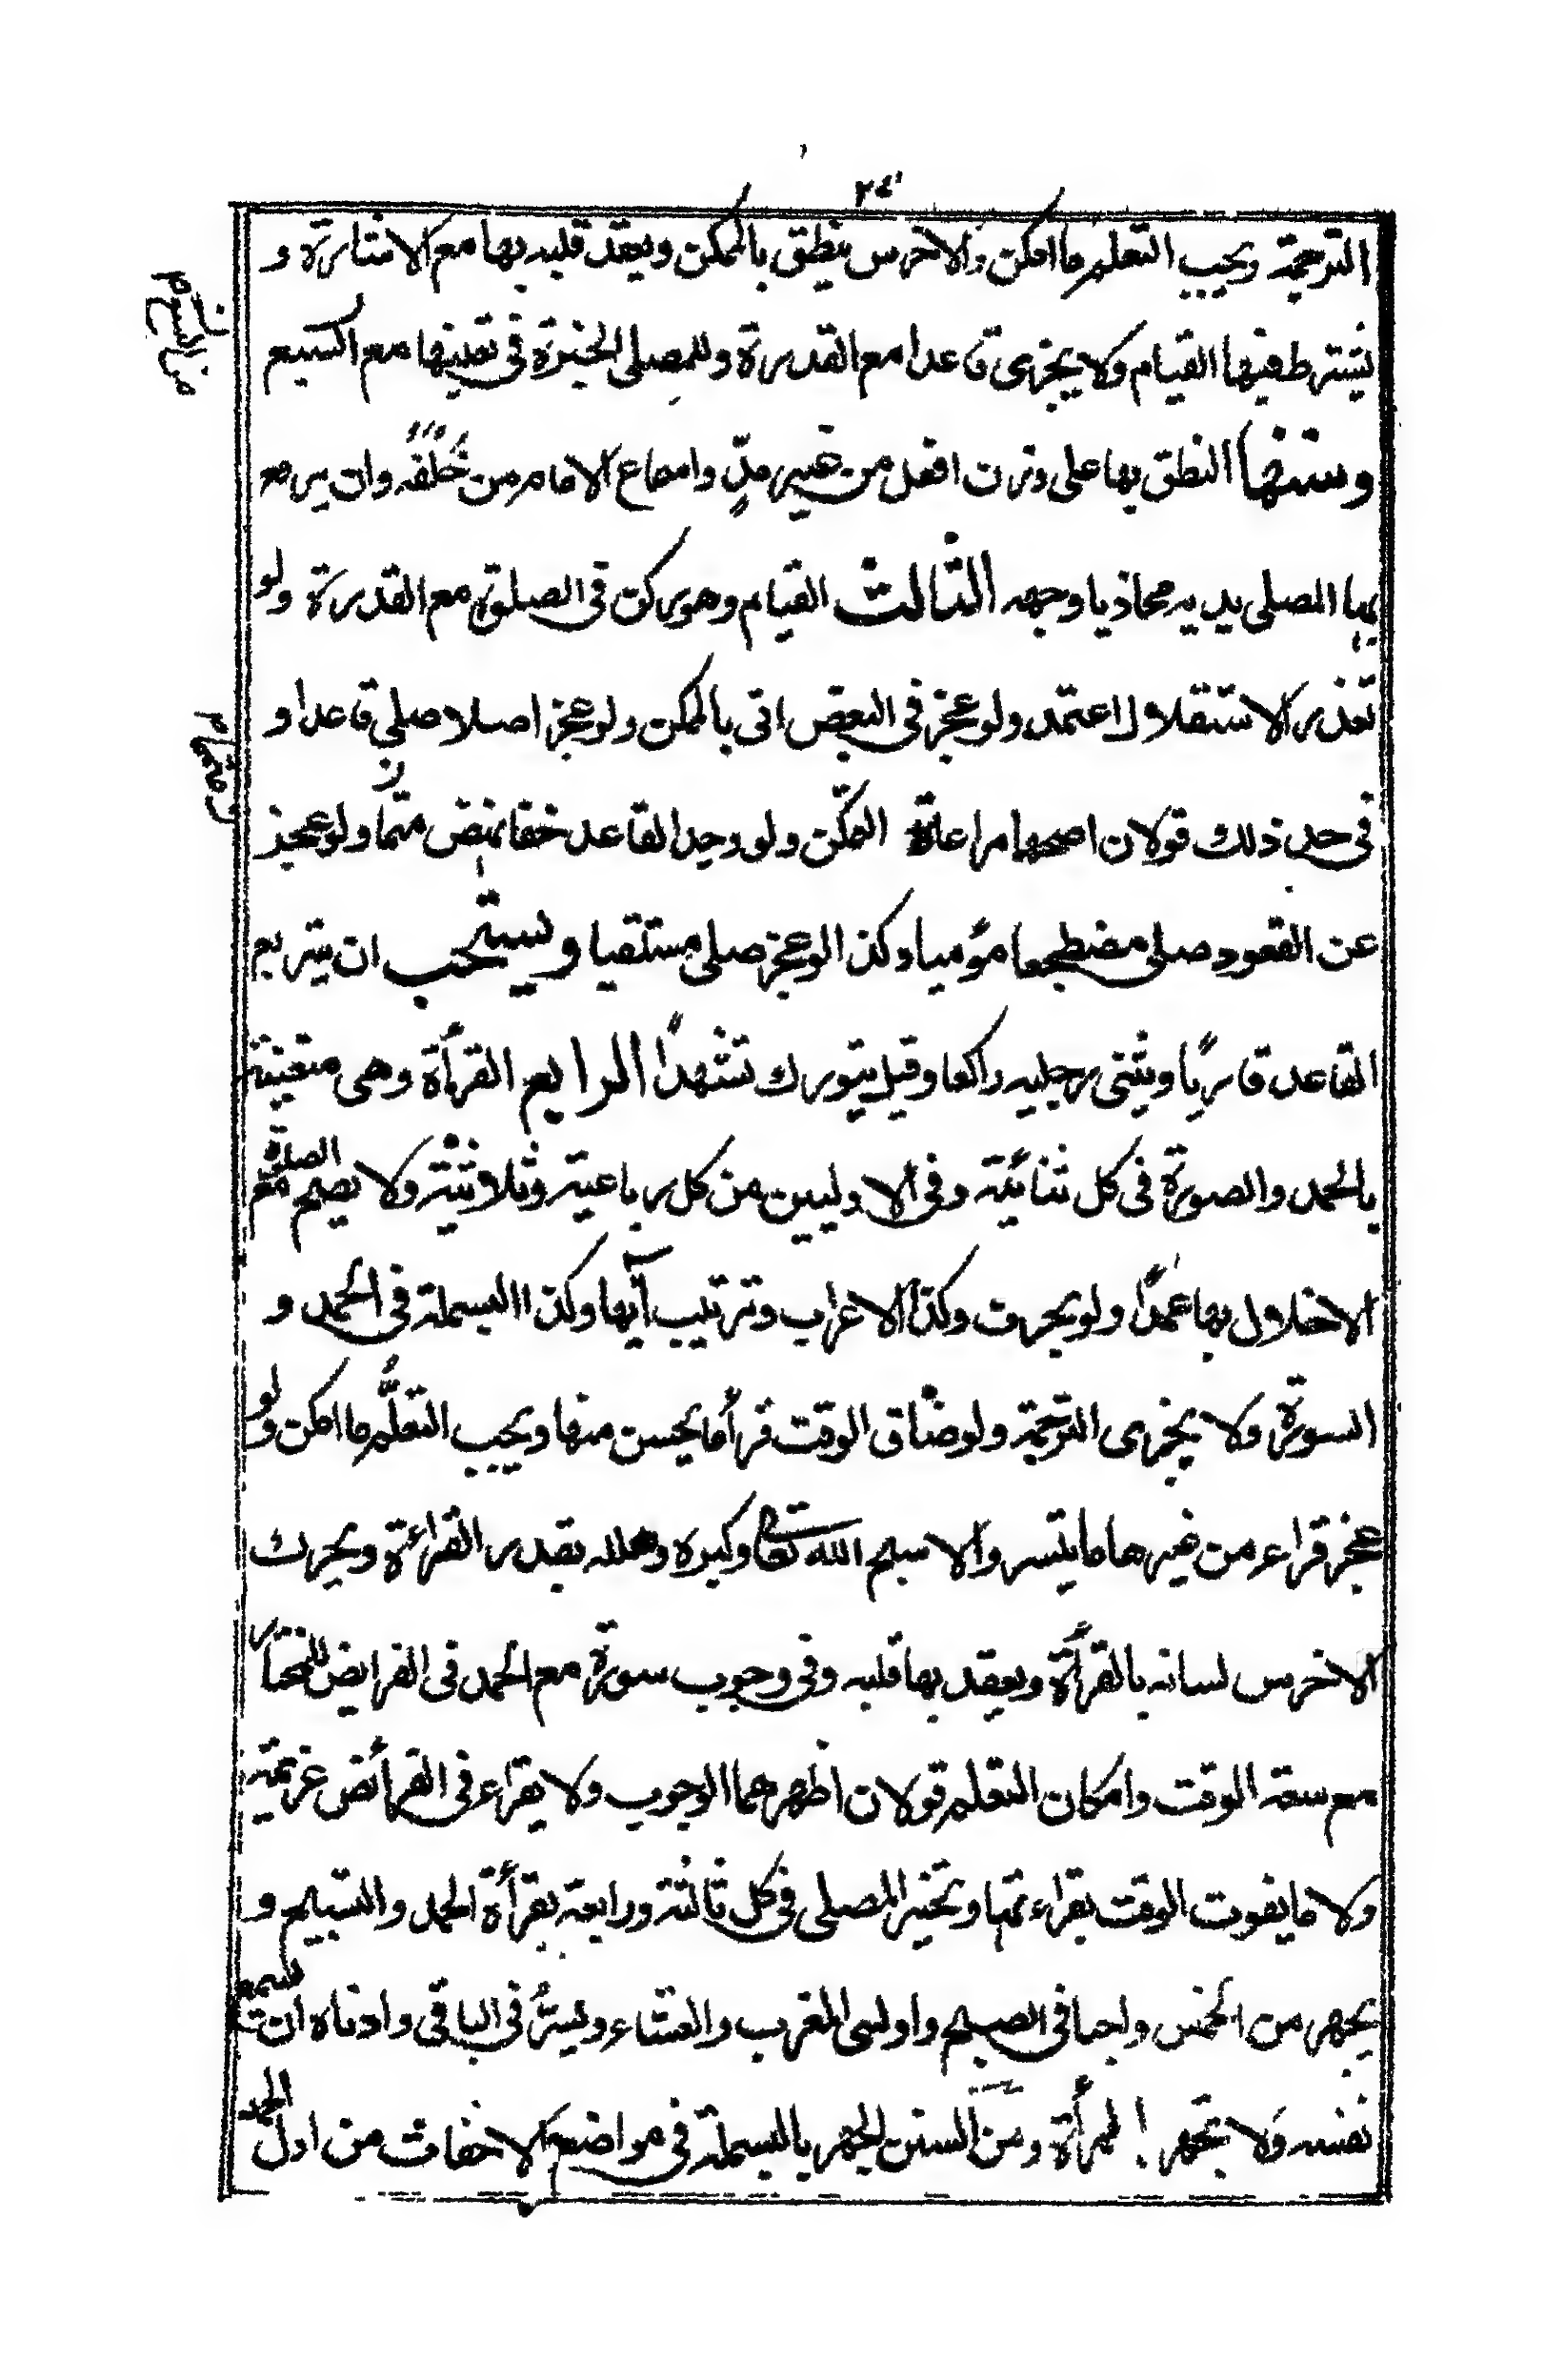 ٢٤
الترجمة ويجب التعلم ما امكن والاخرس ينطق بالممكن ويعقد قلبه بها مع الاشارة و
يشترط فيها القيام ولا يجزى قاعدا مع القدرة وللمصلى الخيرة فى تعيينها مع السبع
وسننها النطق بها على وزن افعل من غير مدّ واسماع الامام من خلفه وان يرفع
بها المصلى يديه محاذيا وجهه الثالث القيام وهو ركن فى الصلوة مع القدرة ولو
تعذر الاستقلال اعتمد ولو عجز فى البعض اتى بالممكن ولو عجز اصلا صلى قاعدا و
فى حد ذلك قولان اصحهما مراعاة التمكّن ولو وجد القاعد خفا نهض متمّا ولو عجز
عن القعود صلى مضطجعا مؤميا وكذا لو عجز صلى مستلقيا ويستحب ان يتربع
القاعد قاريًا ويثنى رجليه راكعا وقيل يتورك تشهدًا الرابع القرأة وهى متعينة
بالحمد والصورة فى كل ثنائية وفى الاوليين من كل رباعية وثلاثية ولا يصح الصلاة مع
الاخلال بها عمدًا ولو بحرف وكذا الاعراب وترتيب آيها وكذا البسملة فى الحمد و
السورة ولا يجزى الترجمة ولو ضاق الوقت قرأ ما يحسن منها ويجب التعلّم ما امكن ولو
عجز قراء من غيرها ما يتسر والا سبح الله تعالى وكبره وهلله بقدر القراءة ويحرك
الاخرس لسانه بالقرأة ويعقد بها قلبه وفى وجوب سورة مع الحمد فى الفرايض للمختار
مع سعة الوقت وامكان التعلم قولان اظهرهما الوجوب ولا يقراء فى الفرائض عزيمة
ولا ما يفوت الوقت بقراءتها ويتخير المصلى فى كل ثالثة ورابعة بقرأة الحمد والتسبيح و
يجهر من الخمس واجبا فى الصبح واولى المغرب والعشاء ويسرُّ فى الباقى وادناه ان يسمع
نفسه ولا تجهر المرأة ومن السنن الجهر بالبسملة فى مواضع الاخفات من اول الحمد